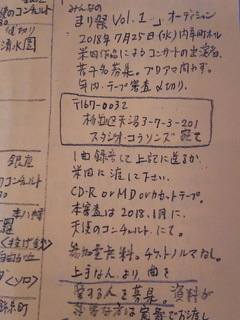 みんなの
まり祭 Vol.1 オーディション
2018年7月25日(水)内幸町ホール
米田作品によるコンサートの出演者
若干名募集。プロアマ問わず。
年内、テープ審査〆切り。
〒167-0032
杉並区天沼3-7-3-201
スタジオ・コラソンズ 宛て
1曲録音して上記に送るか、
米田に渡して下さい。
CD-R or MD or カセットテープ。
本審査は2018.1月に、
天使のコンチェルトにて。
参加費無料。チケットノルマなし。
上手な人より曲を
愛する人を募集。資料が
必要な方は実費でお渡し
のコンチェルト
清水国
銀座
のコンチェルト